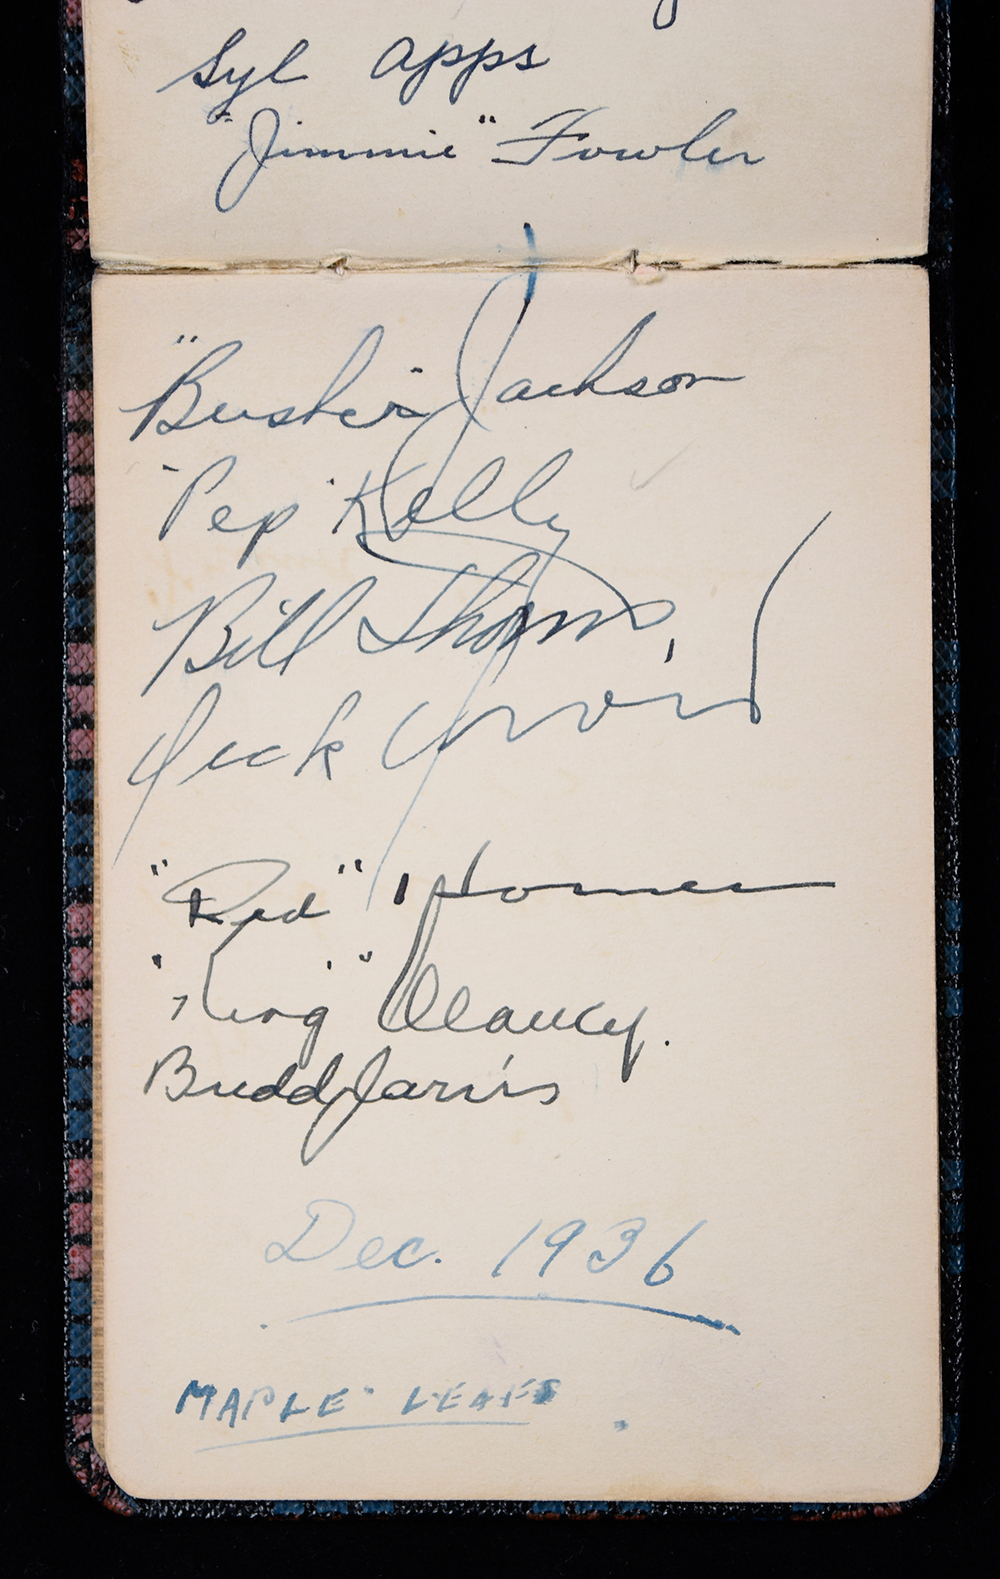 Syl apps
"Jimmie" Fowler
"Busher" Jackson
"Pep" Kelly
Bill Thoms,
Jack
"Red" Horner
"King" Clancy.
Budd Jarvis
Dec. 1936
MAPLE LEAFS.